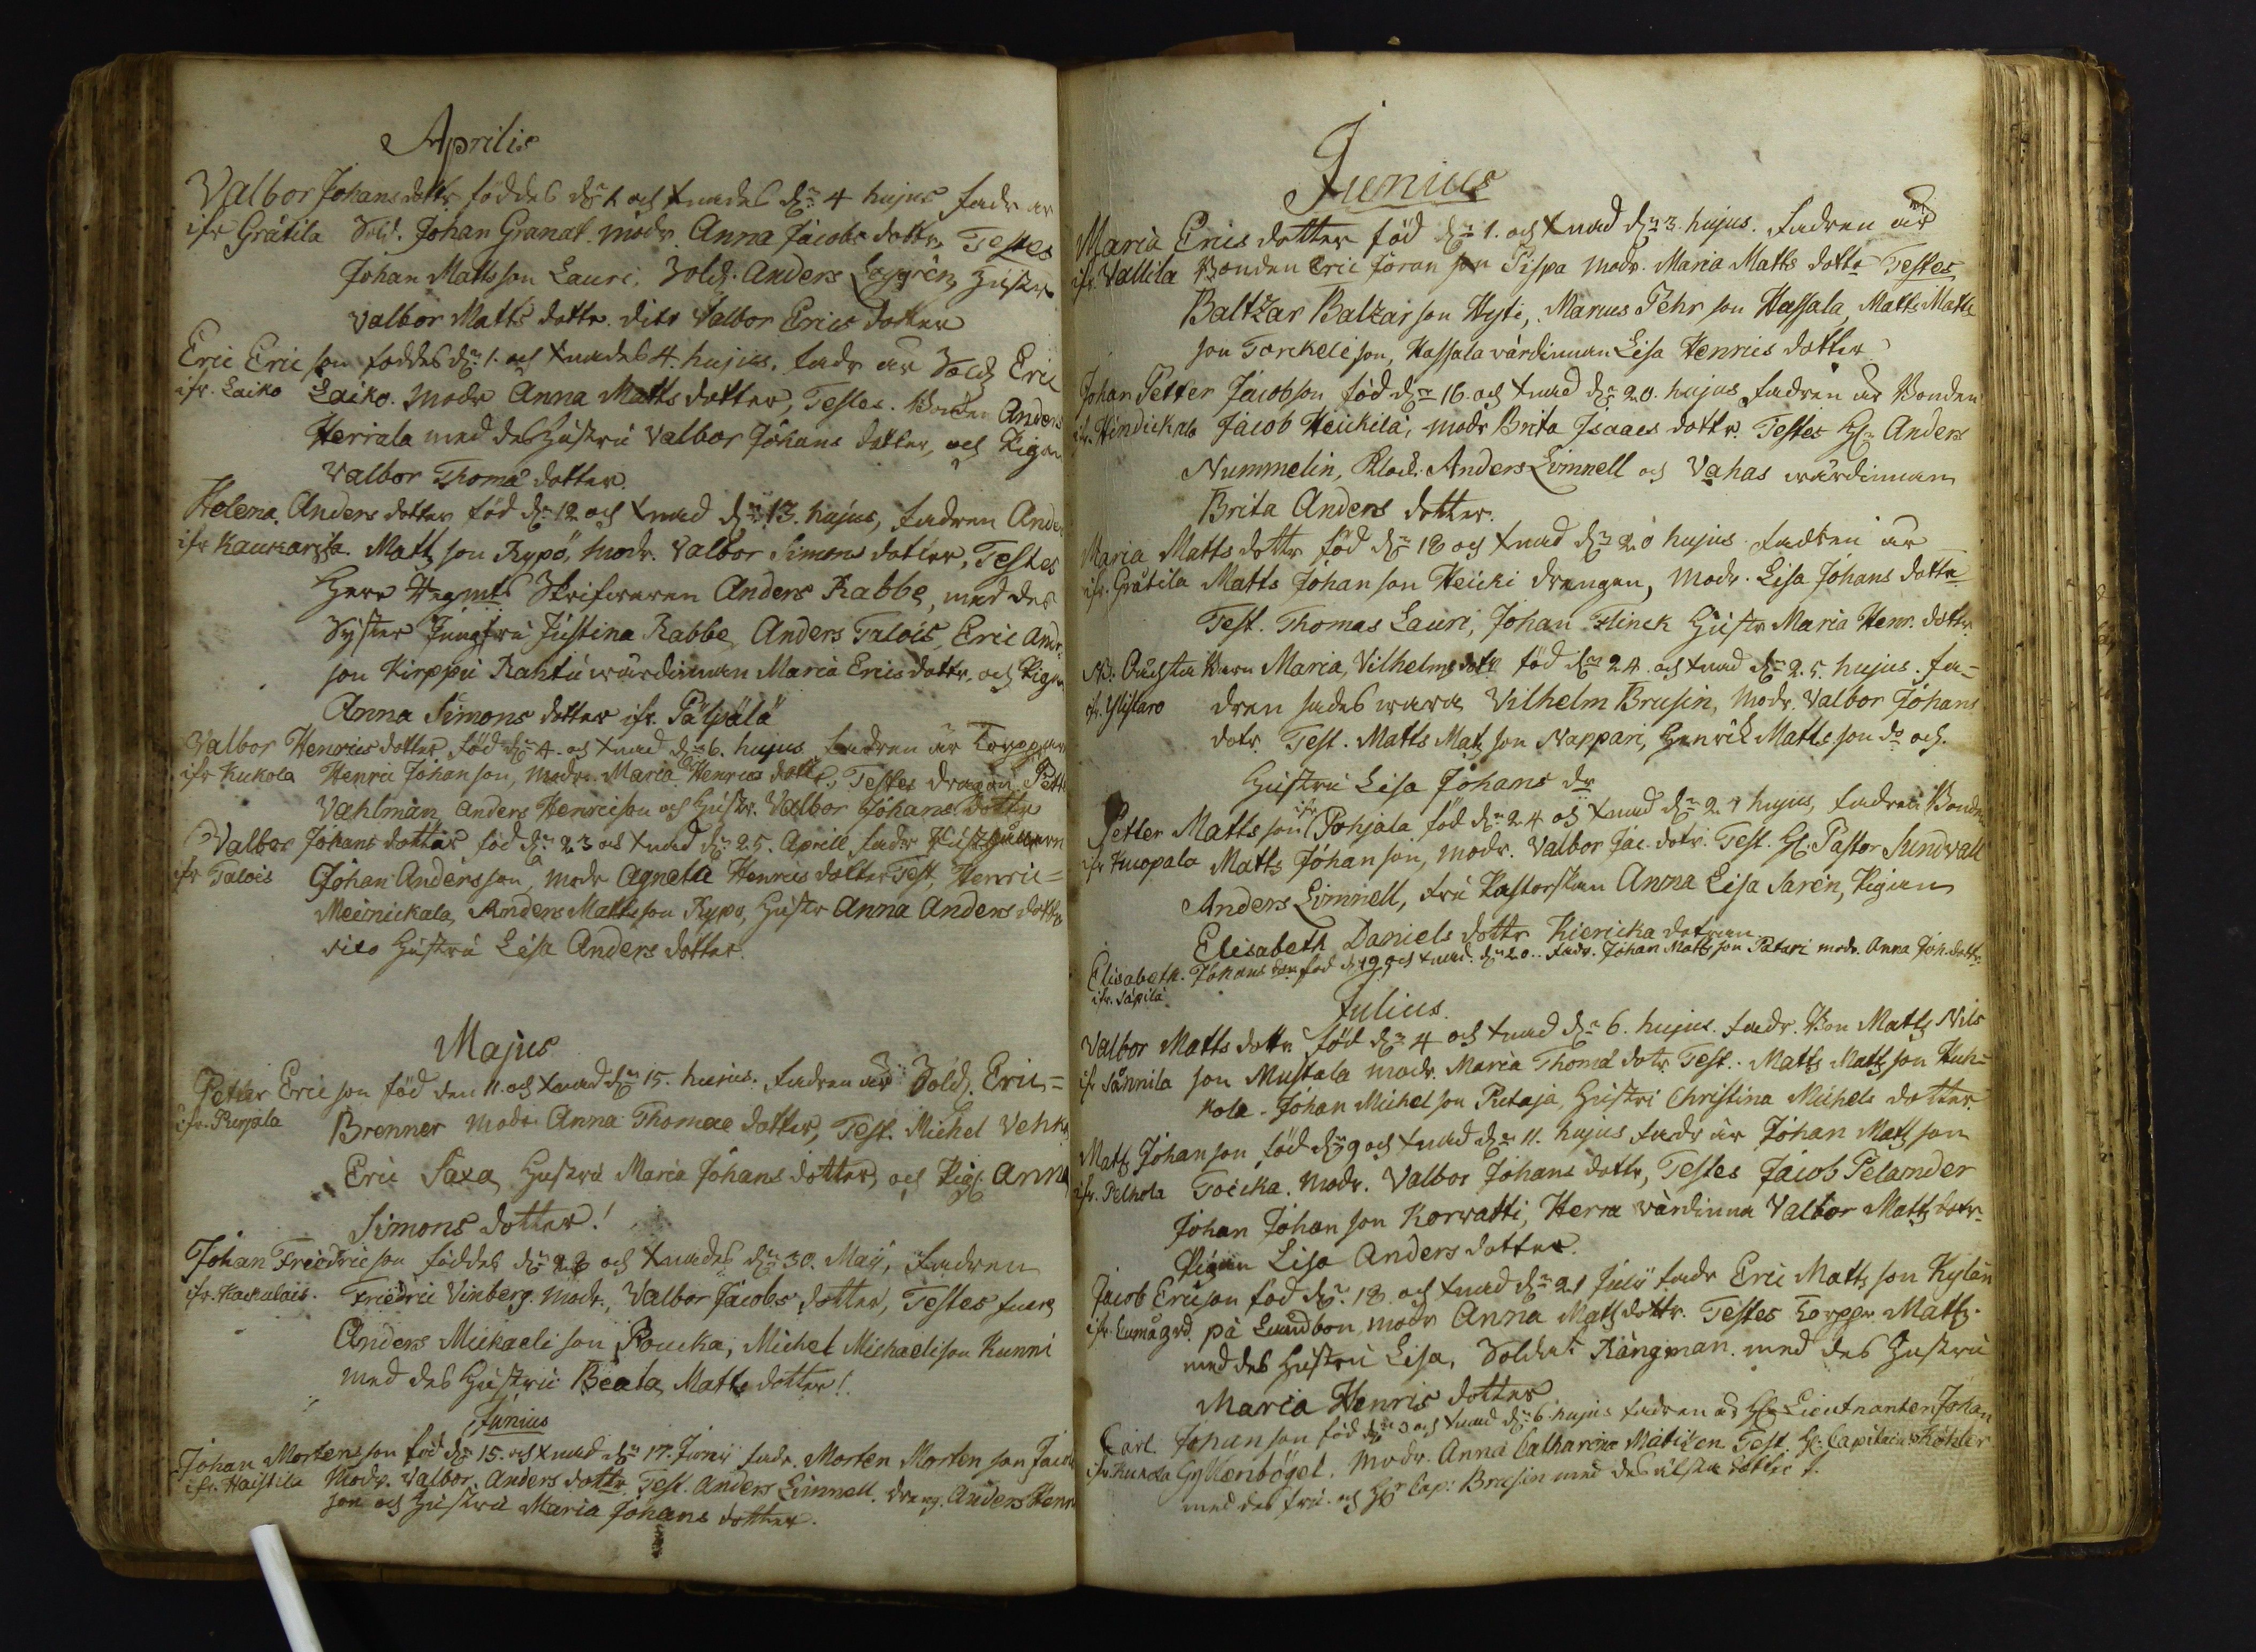 Aprilis
Valbor Johansdottr föddes d:n 1 och Xnades d:n 4 hujus fadr är
ifr Gråtila Sold. Johan Granat modr. Anna Jacobs dottr, Testes
Johan Matts son Lauri, Sold. Anders Löfgrén, Hustr.
Valbor Matts dottr. dito Valbor Erics dotter
Eric Eric son föddes d:n 1. och Xnades 4. hujus. fadr är Sold. Eric
ifr. Laiko Laiko. Modr Anna Matts dotter, Testes. Bonden Anders
Heriala med des Hustru Valbor Johans dotter, och Pigan
Valbor Thomæ dotter.
Helena Anders dotter född d:n 12 och Xnad d:n 13. hujus, fadren Anders
ifr Kaukarsla. Matts son Rypö, Modr. Valbor Simons dotter, Testes
Herr Regmts Skrifwaren Anders Rabbe, med des
Syster Jungfru Justina Rabbe, Anders Talois, Eric Andr.
son Kirppu Rahtu wärdinnan Maria Erics dottr, och Pigan
Anna Simons dotter ifr. Päljälä
Valbor Henrics dotter född d:n 4. och Xnad d:n 6. hujus fadren är Torpparn
ifr Kukola Henric Johan son, modr. Maria Henrics dottr, Testes dragon Pett.
Vahlman, Anders Henricson och Hustr. Valbor Johans dotter
Valbor Johans dotter född d:n 23 och Xnad d:n 25. Aprill, fadr
ifr Talois Johan Andersson, modr Agneta Henrics dotter Test, Henric
Meinickala, Anders Mattsson Rypö, Hustr Anna Anders dotter
dito Hustru Lisa Anders dotter.
Majus
Petter Eric son född den 11. och Xnad d:n 15. hujus. fadren är Sold. Eric
ifr. Purjala Brenner Modr Anna Thomae dotter, Test. Michel Vehka
Eric Saxa, Hustru Maria Johans dotter, och Pig. Anna
Simons dotter!
Johan Friedric son föddes d:n 28 och Xnades d:n 30. Maij, fadren
ifr. Kaukalais. Friedric Vinberg. Modr., Valbor Jacobs dotter, Testes
Anders Mickaeli son Roucka, Michel Michaelison Kunni
med des Hustru Beata Matts dotter!
Junius
Johan Mortens son född d:n 15. och Xnad d:n 17. Junij fadr. Morten Morten son
ifr. Haistila Modr. Valbor Anders dottr, Test. Anders Limnell. dreng. Anders Henr
son och Hustru Maria Johans dotter.
Junius
Maria Erics dotter född d:n 1. och Xnad d:n 3. hujus. fadren är
ifr. Vallila Bonden Eric Jöran son Pispa modr. Maria Matts dottr Testes
Baltzar Balzar son Hyti, Marcus Pehr son Hassala, Matts Matts
son Torckelison, Hassala värdinnan Lisa Henrics dotter
Johan Petter Jacobson född d:n 16. och Xnad d:n 20. hujus fadren är Bonden
ifr. Hindickala Jacob Heickilä, modr Brita Isaacs dottr. Testes Hr Anders
Nummelin, Klock. Anders Limnell och Vahas wärdinnan
Brita Anders dotter.
Maria Matts dottr född d:n 18 och Xnad d:n 20 hujus fadren är
ifr. Gråtila Matts Johan son Heicki drengen, Modr. Lisa Johans dottr
Test. Thomas Lauri, Johan Flinck Hustr Maria Henr. dottr.
NB. Oächta barn Maria, Vilhelms dotr född d:n 24. och Xnad d:n 25. hujus fa-
ifr. Ylistaro dren sades wara Vilhelm Brusin, Modr. Valbor Johans
dotr. Test. Matts Mats son Nappari, Henrik Matts son do och.
Hustru Lisa Johans dr
Petter Matts son ifr Pohjala född d:n 24 och Xnad d:n 27 hujus, fadren Bonden
ifr Kuopala Matts Johan son, modr. Valbor Jac. dotr. Test. Hr. Pastor Sundvall
Anders Limnell, fru Pastorskan Anna Lisa Sarén, Pigan
Elisabeth Daniels dottr Kiericka
Elisabeth. Johans född d:n 19 och Xnad. d:n 20. fadr. Johan Matts son Patari modr. Anna Joh. dottr
ifr. Säpilä
Julius.
Valbor Matts dottr född d:n 4 och Xnad d:n 6. hujus. fadr. Bon Matts Nils
ifr Sännila son Mustala modr. Maria Thomæ dotr, Test. Matts Matts son Kuh=
kola. Johan Michel son Putaja, Hustru Christina Michels dotter.
Matts Johan son född d:n 9 och Xnad d:n 11. hujus fadr är Johan Matts son
ifr. Pelhola Toicka. Modr. Valbor Johans dottr, Testes Jacob Pelander
Johan Johan son Korwatti, Herra värdinna Valbor Matts dotr
Pigan Lisa Anders dotter.
Jacob Ericson född d:n 18. och Xnad d:n 21 Julij fadr Eric Matts son Kylän
på Sundbon modr Anna Matts dottr. Testes Torpp. Matts.
med des Hustru Lisa, Soldat Rångman. med des Hustru
Maria Henrics dotter
Carl Johanson född d:n 3 och Xnad d:n 6. hujus fadren är Hr Lieutnanten Johan
Gyllenbögel, Modr. Anna Catharina Matisen Test. Hr. Capitain Köhler
med des fru och Hr Cap: Brusin med des älsta dotter